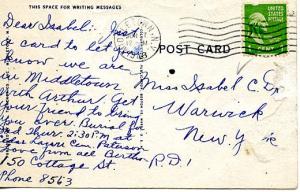 THIS SPACE FOR WRITING MESSAGES
Dear Isabel: Just
a card to let you
know we are
in Middletown
with Arthur. Get
your friend to bring
you over. Burial for
Thur. 2:30 P.M. at
Cem. Paterson
Love from all Bertha
150 Cottage St.
Phone 8563
POST CARD
1 CENT
Miss Isabel C. D.
Warwick
New Y
R.D.1